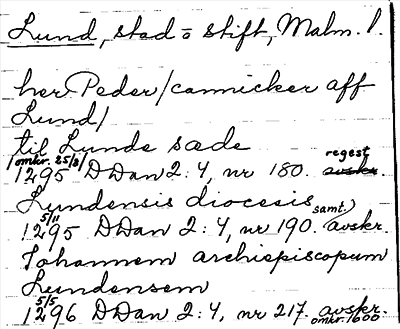 Lund, stad o stift, Malm. l.
her Peder/cannicker aff
Lund/
til Lunde sæde
/omkr. 25/3/ regest
1295 DDan 2:4, nr 180. avskr.
Lundensis diocesis samt.)
5/11
1295 DDan 2:4, nr 190. avskr.
Johannem archiepiscopum
Lundensem
5/5
1296 DDan 2:4, nr 217. avskr.
omkr. 1600